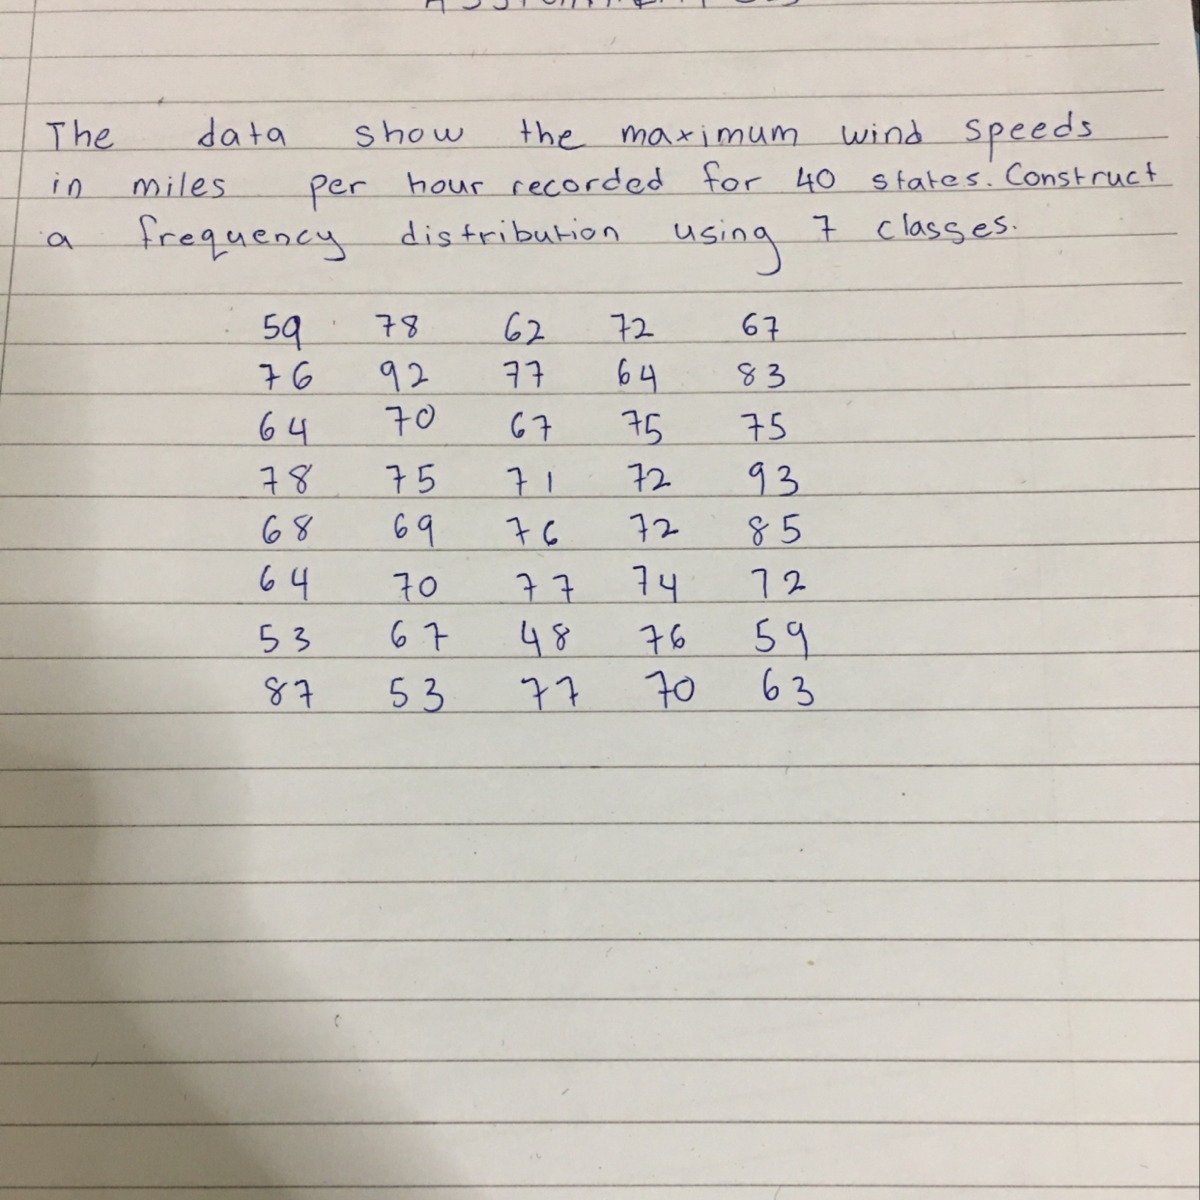 The data show the maximum wind speeds
in miles per hour recorded for 40 states. Construct
a frequency distribution using 7 classes.
59 78 62 72 67
76 92 77 64 83
64 70 67 75 75
78 75 71 72 93
68 69 76 72 85
64 70 77 74 72
53 67 48 76 59
87 53 77 70 63